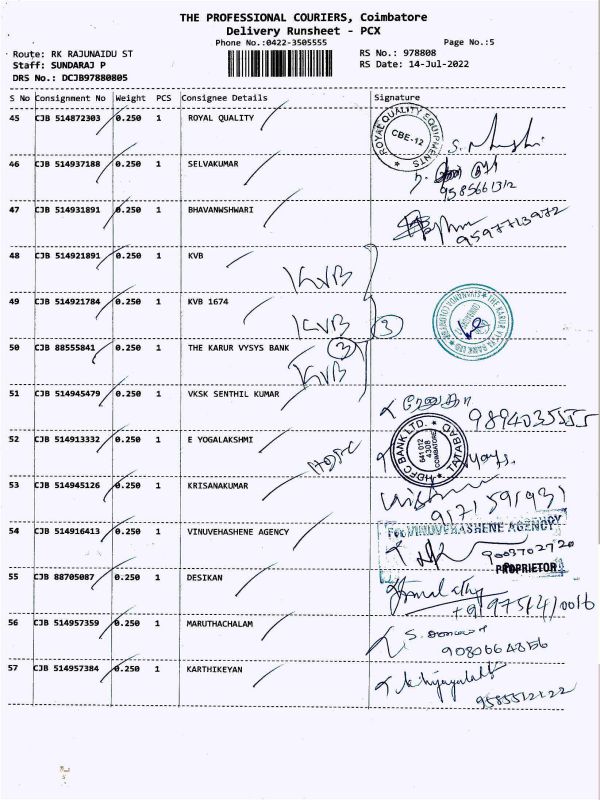 THE PROFESSIONAL COURIERS, Coimbatore
Delivery Runsheet - PCX
Phone No.:0422-3505555 Page No.:5
Route: RK RAJUNAIDU ST RS No.: 978808
Staff: SUNDARAJ P RS Date: 14-Jul-2022
DRS No.: DCJB97880805
S No Consignment No Weight PCS Consignee Details Signature
45 CJB 514872303 0.250 1 ROYAL QUALITY
ROYAL QUALITY EQUIPMENTS
CBE-12
46 CJB 514937188 0.250 1 SELVAKUMAR
9585661312
47 CJB 514931891 0.250 1 BHAVANWSHWARI
9597713972
48 CJB 514921891 0.250 1 KVB
KVB
49 CJB 514921784 0.250 1 KVB 1674
KVB 3
THE KARUR VYSYA BANK LTD
50 CJB 88555841 0.250 1 THE KARUR VYSYS BANK 3
KVB
51 CJB 514945479 0.250 1 VKSK SENTHIL KUMAR
9894035555
52 CJB 514913332 0.250 1 E YOGALAKSHMI
HDFC
HDFC BANK LTD.
641 012
4308
COIMBATORE
TATABAD
53 CJB 514945126 0.250 1 KRISANAKUMAR
9171591931
54 CJB 514916413 0.250 1 VINUVEHASHENE AGENCY
For VINUVEHASHENE AGENCY
9003702720
PROPRIETOR
55 CJB 88705087 0.250 1 DESIKAN
56 CJB 514957359 0.250 1 MARUTHACHALAM
9080664356
57 CJB 514957384 0.250 1 KARTHIKEYAN
9585512122